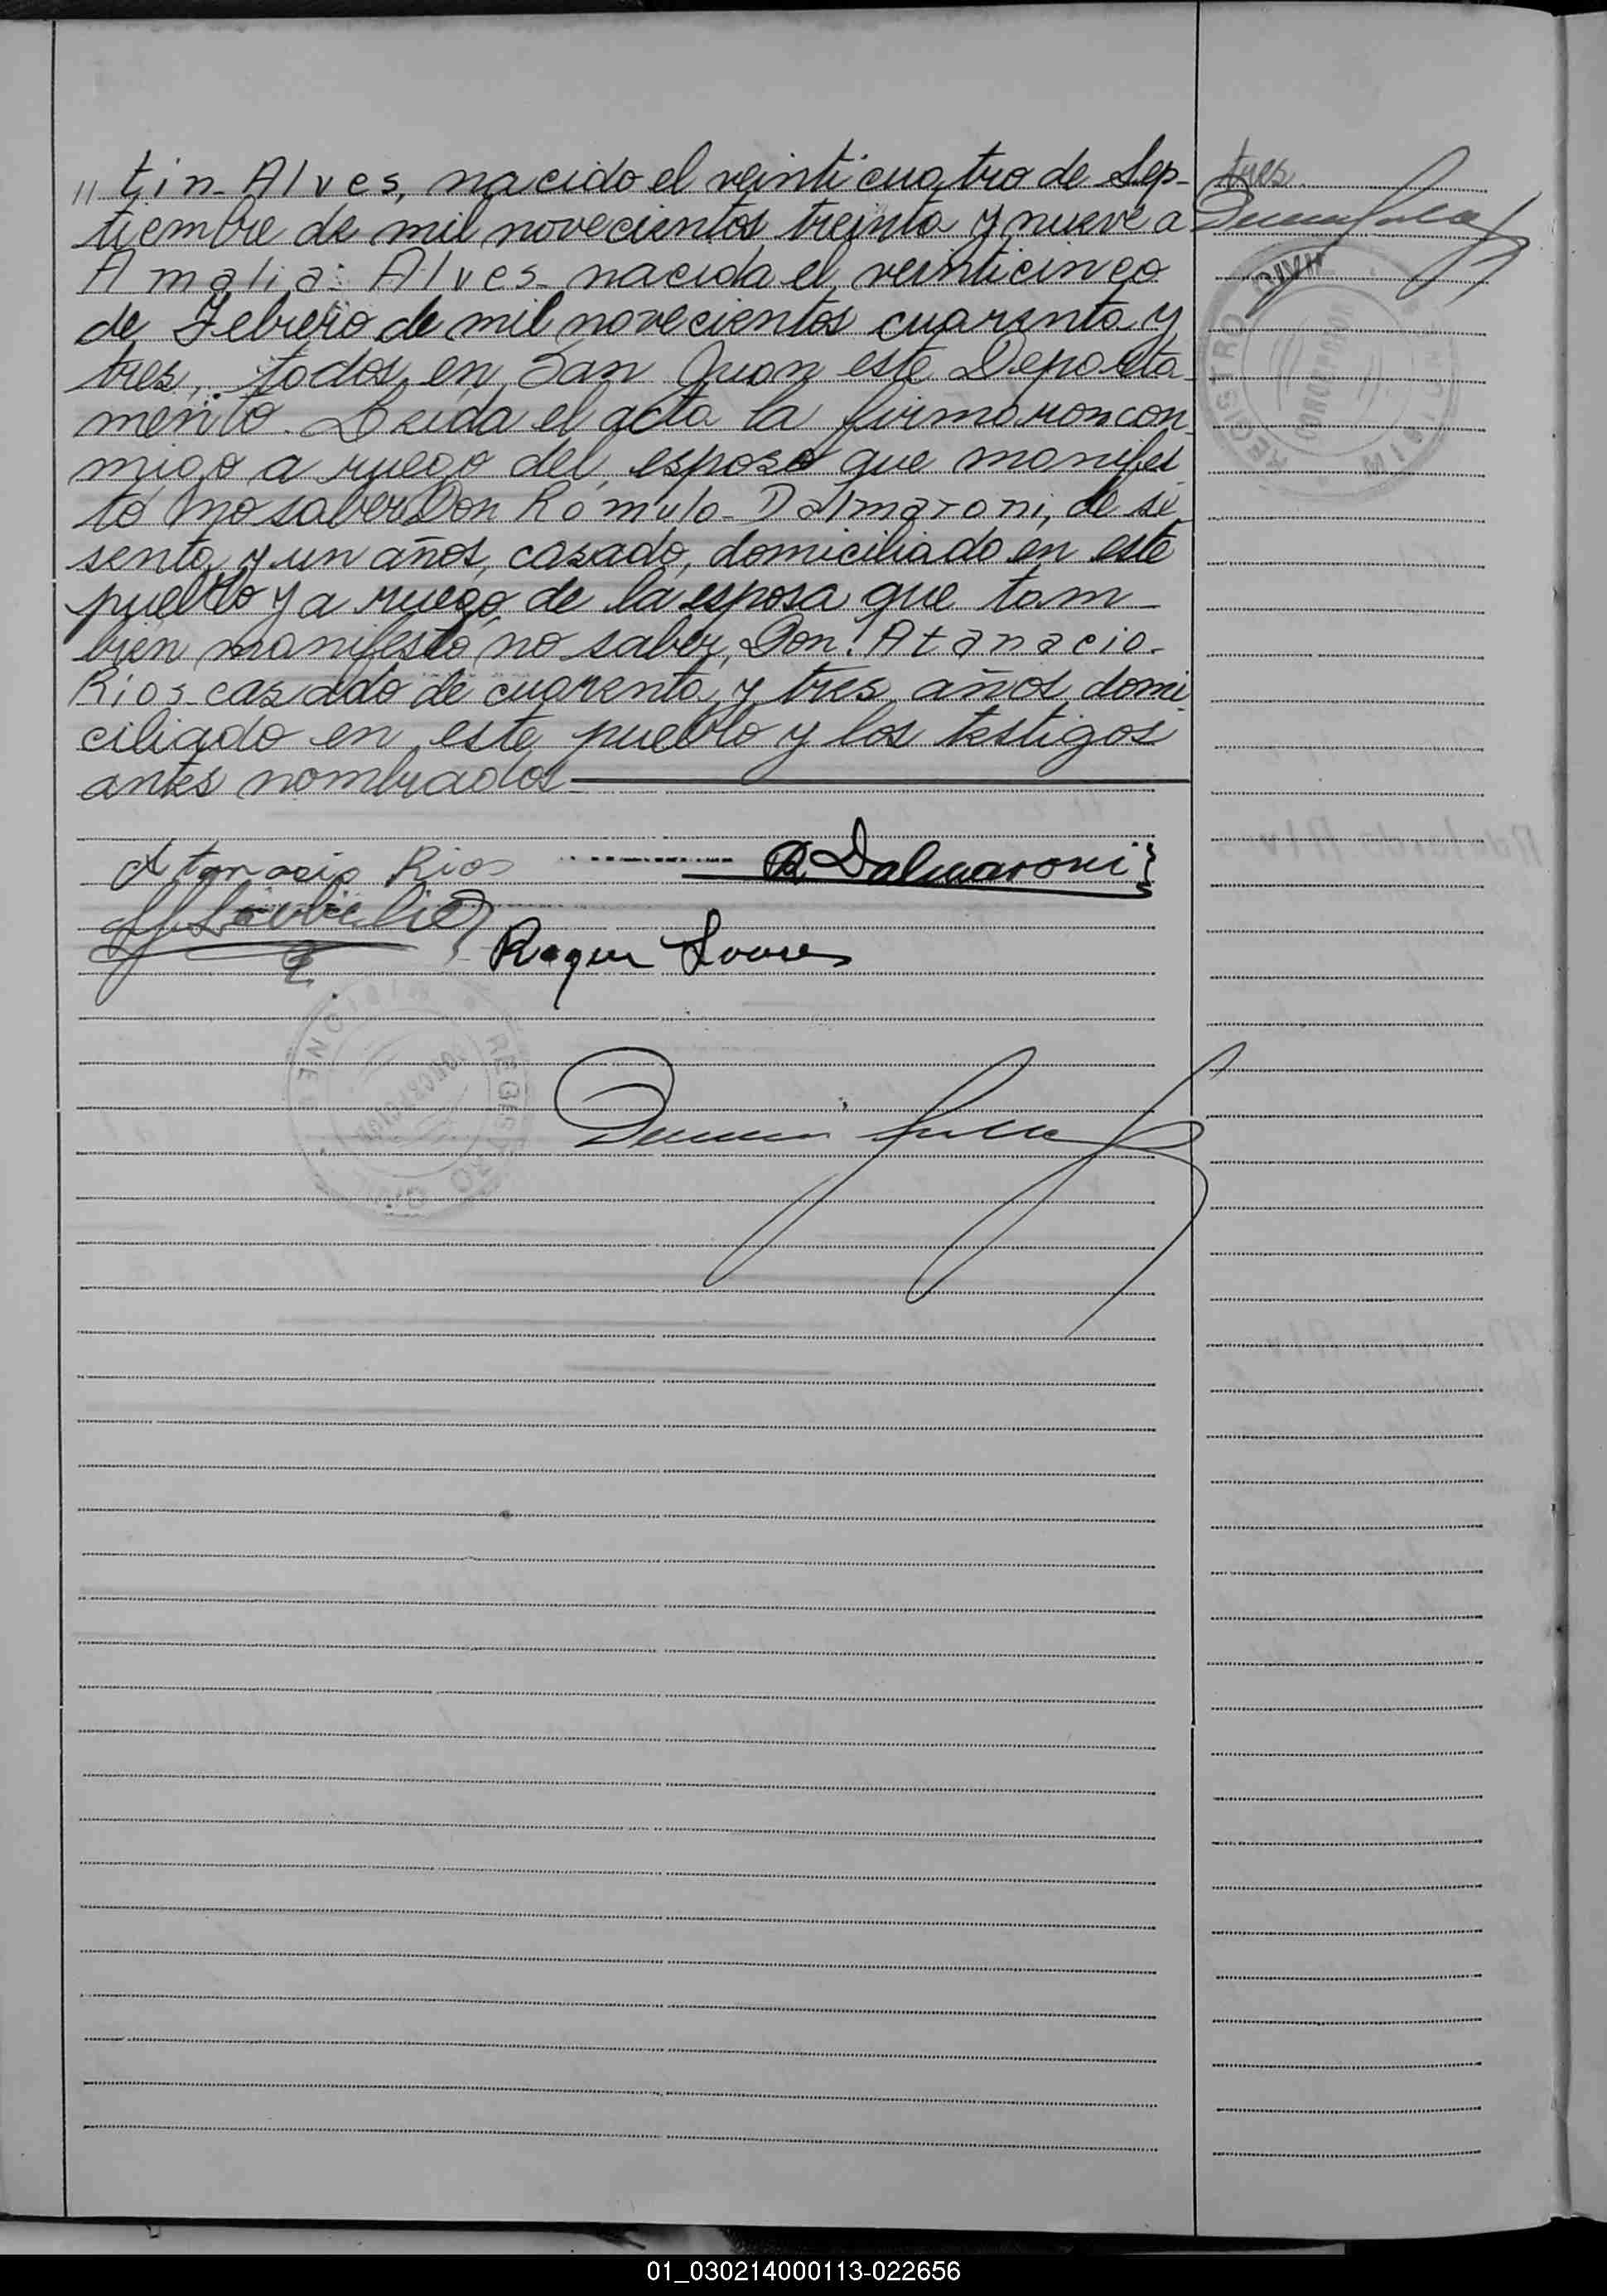 " tin- Alves, nacido el veinticuatro de Sep-
tiembre de mil novecientos treinta y nueve a
Amalia: Alves- nacida el veinticinco
de Febrero de mil novecientos cuarenta y
tres, todos en San Juan este Departa-
mento. Leida el acta la firmaron con
migo a ruego del esposo que manifes
tó no saber Don Rómulo- Dalmaroni, de se
senta y un años, casado, domiciliado en este
pueblo y a ruego de la esposa que tam-
bien manifestó no saber, Don: Atanacio-
Rios- casado de cuarenta y tres años domi
ciliado en este pueblo y los testigos
antes nombrados
Atanacio Rios
R Dalmaroni
Roque
tres.
REGISTRO CIVIL
MISIONES
CONCEPCION
REGISTRO CIVIL
MISIONES
CONCEPCION
01_030214000113-022656